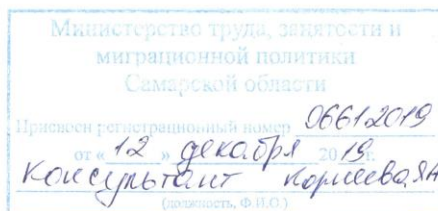 Министерство труда, занятости и
миграционной политики
Самарской области
Присвоен регистрационный номер 06612019
от «12» декабря 2019г.
Консультант Корнеева ЯН
(должность, Ф.И.О.)